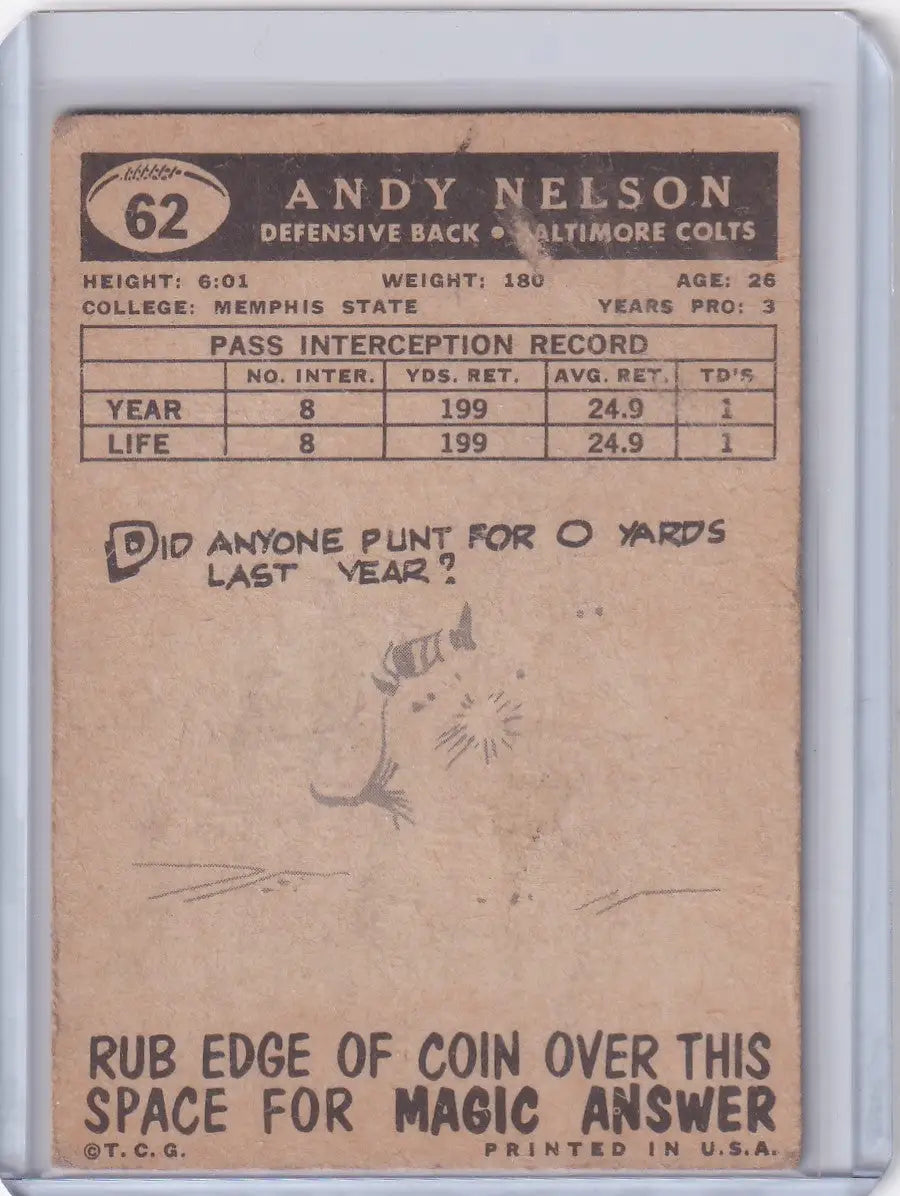 62
ANDY NELSON
DEFENSIVE BACK • BALTIMORE COLTS
HEIGHT: 6:01 WEIGHT: 180 AGE: 26
COLLEGE: MEMPHIS STATE YEARS PRO: 3
PASS INTERCEPTION RECORD
NO. INTER. YDS. RET. AVG. RET. TD'S
YEAR 8 199 24.9 1
LIFE 8 199 24.9 1
DID ANYONE PUNT FOR 0 YARDS
LAST YEAR?
RUB EDGE OF COIN OVER THIS
SPACE FOR MAGIC ANSWER
©T. C. G. PRINTED IN U.S.A.